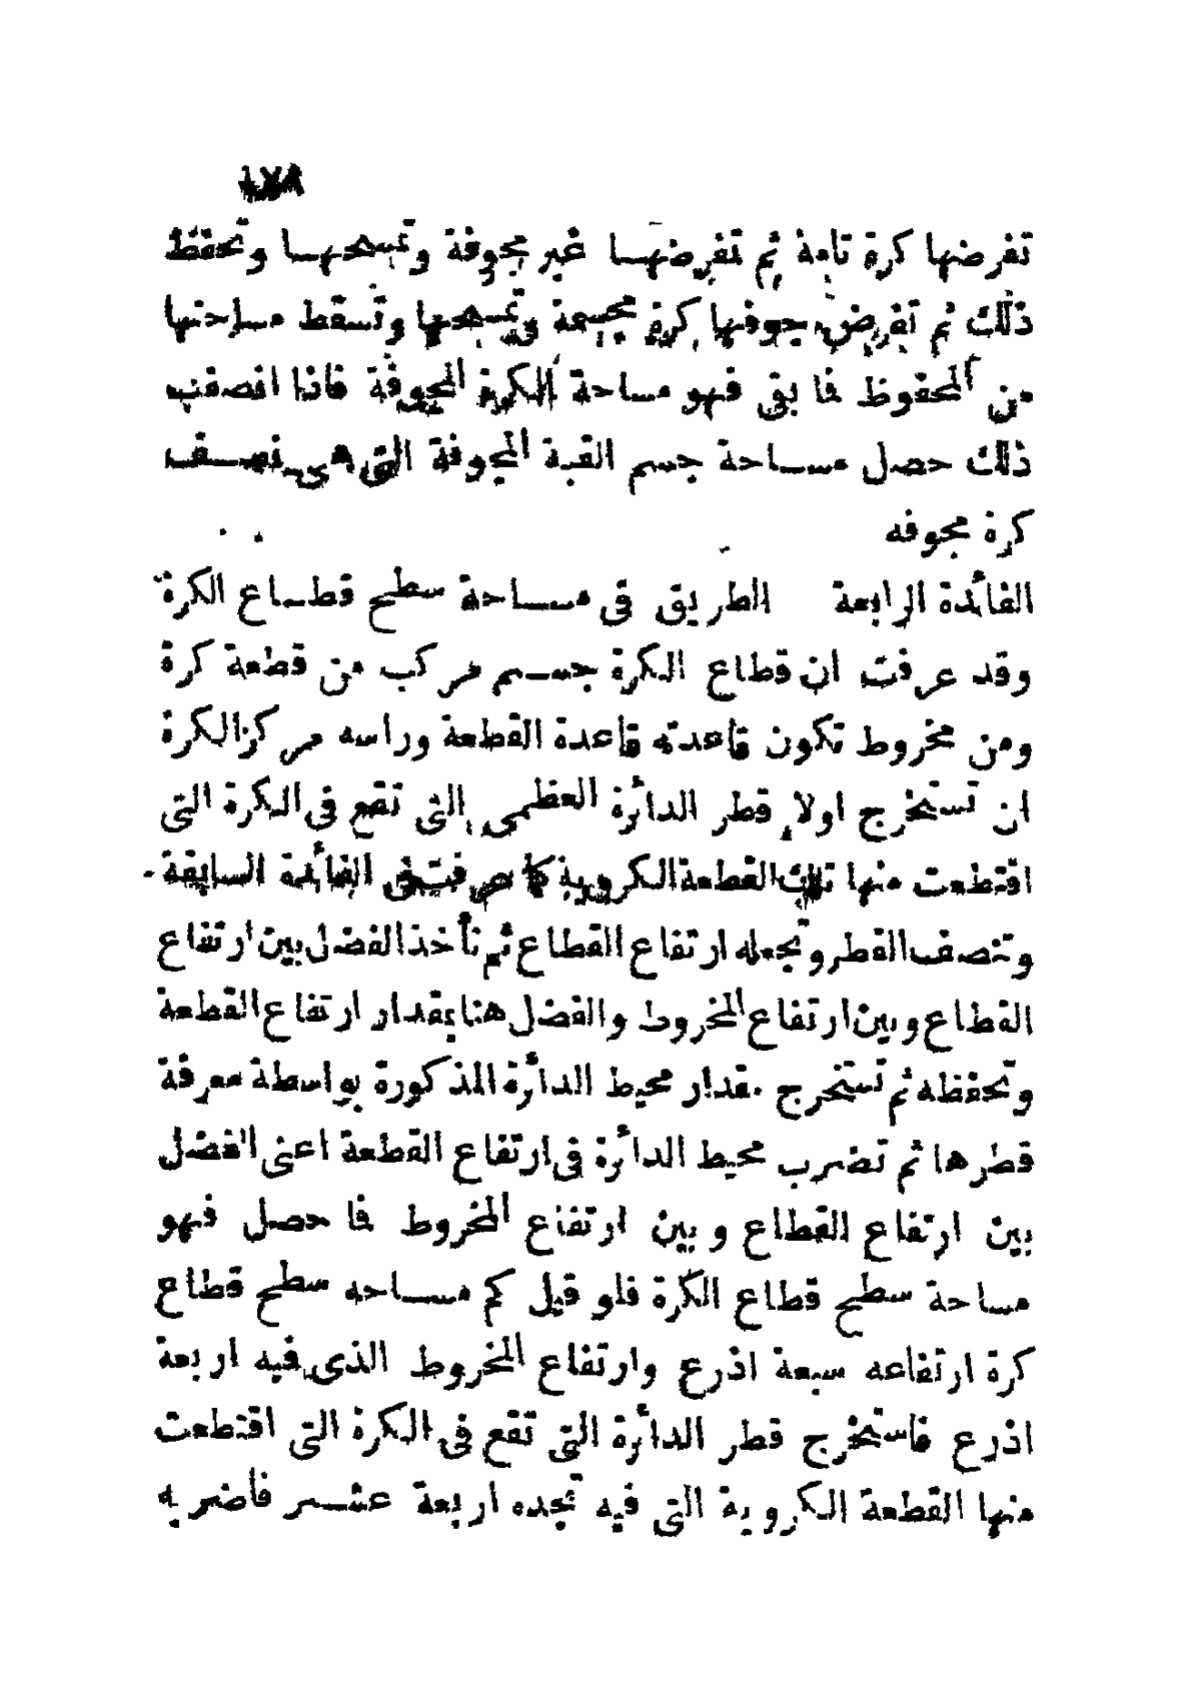 ١٧٨
تفرضها كرة تامة ثم تفرضها غير مجوفة وتمسحها وتحفظ
ذلك ثم تفرض جوفها كرة مجسمة وتمسحها وتسقط مساحتها
من المحفوظ فما بقى فهو مساحة الكرة المجوفة فاذا انصفت
ذلك حصل مساحة جسم القبة المجوفة التى هى نصف
كرة مجوفه
الفائدة الرابعة الطريق فى مساحة سطح قطاع الكرة
وقد عرفت ان قطاع الكرة جسم مركب من قطعة كرة
ومن مخروط تكون قاعدته قاعدة القطعة وراسه مركز الكرة
ان تستخرج اولا قطر الدائرة العظمى التى تقع فى الكرة التى
اقتطعت منها تلك القطعة الكروية كما عرفت فى الفائدة السابقة
وتنصف القطر وتجعله ارتفاع القطاع ثم تأخذ الفضل بين ارتفاع
القطاع وبين ارتفاع المخروط والفضل هنا بمقدار ارتفاع القطعة
وتحفظه ثم تستخرج مقدار محيط الدائرة المذكورة بواسطة معرفة
قطرها ثم تضرب محيط الدائرة فى ارتفاع القطعة اعنى الفضل
بين ارتفاع القطاع وبين ارتفاع المخروط فما حصل فهو
مساحة سطح قطاع الكرة فلو قيل كم مساحه سطح قطاع
كرة ارتفاعه سبعة اذرع وارتفاع المخروط الذى فيه اربعة
اذرع فاستخرج قطر الدائرة التى تقع فى الكرة التى اقتطعت
منها القطعة الكروية التى فيه تجده اربعة عشر فأضربه